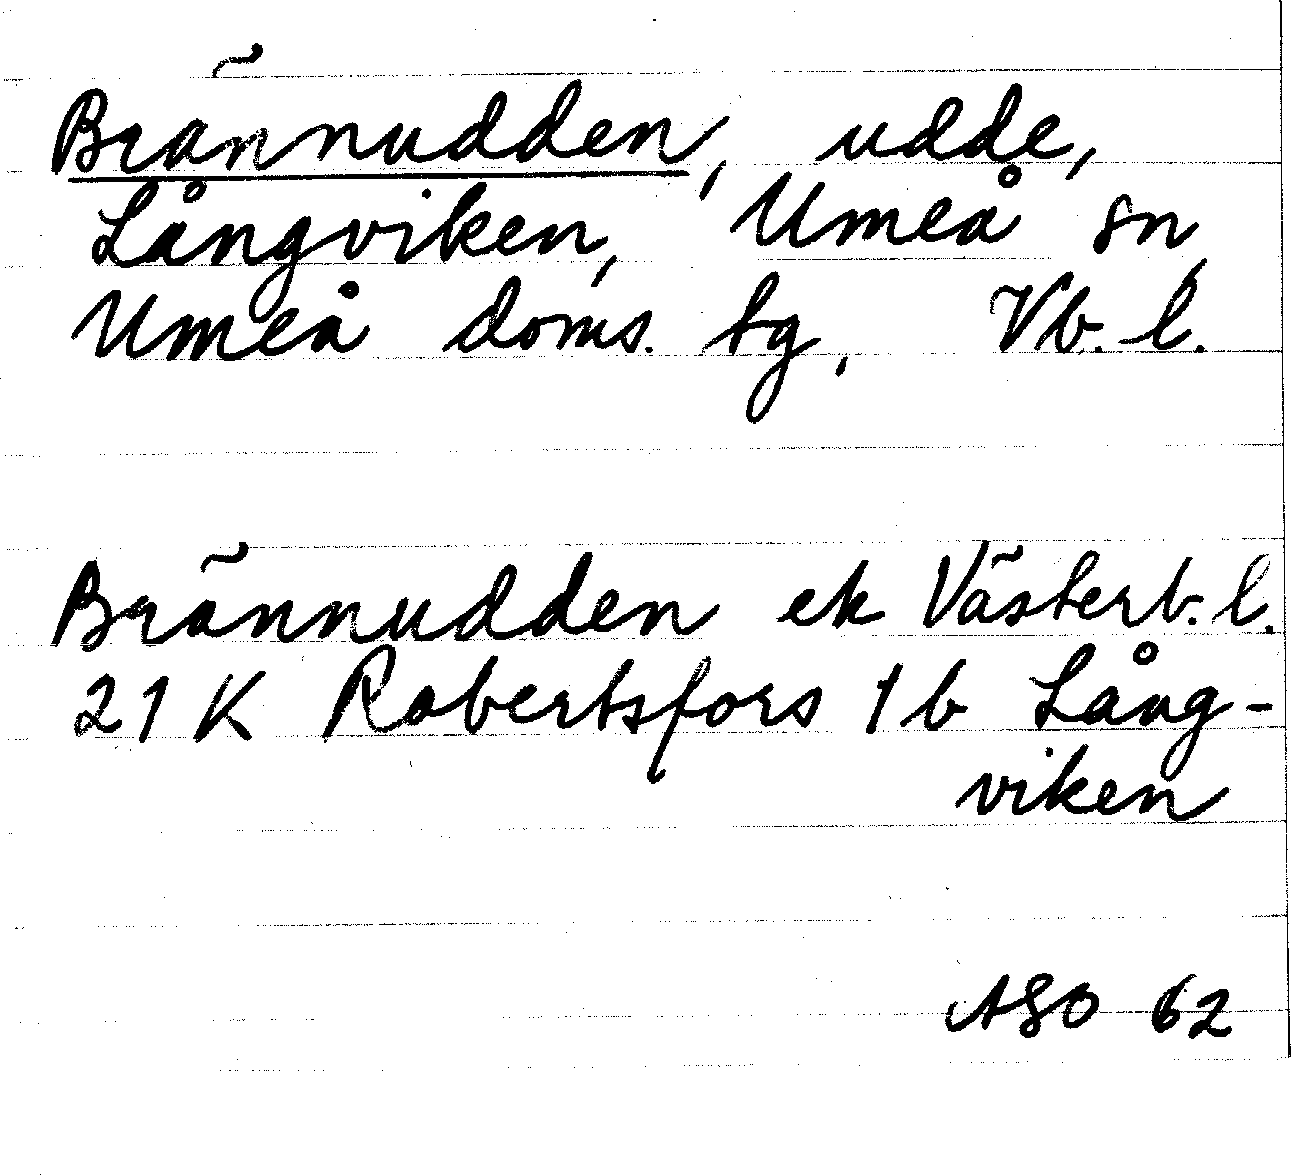 Brännudden, udde,
Långviken, Umeå sn
Umeå doms. tg, Vb. l.
Brännudden ek Västerb. l.
21 K Robertsfors 1 b Lång-
viken
ASO 62